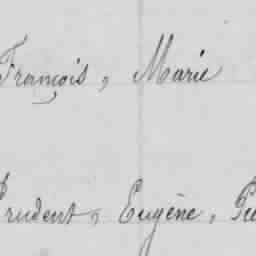 François, Marie
Prudent, Eugène,